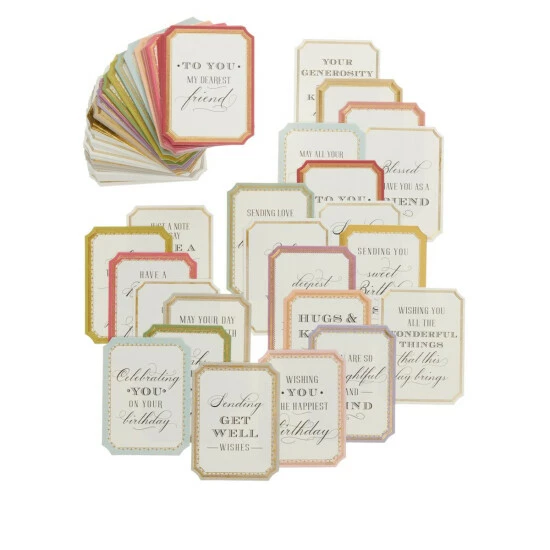 TO YOU
MY DEAREST
friend
YOUR
GENEROSITY
MAY ALL YOUR
Blessed
HAVE YOU AS A
FRIEND
TO YOU
SENDING LOVE
JUST A NOTE
SAY
HAVE A
SENDING YOU
sweet
deepest
MAY YOUR DAY
HUGS &
WISHING YOU
ALL THE
WONDERFUL
THINGS
that this
day brings
YOU ARE SO
AND
KIND
Celebrating
YOU
ON YOUR
birthday
Sending
GET
WELL
WISHES
WISHING
YOU
THE HAPPIEST
BIRTHDAY